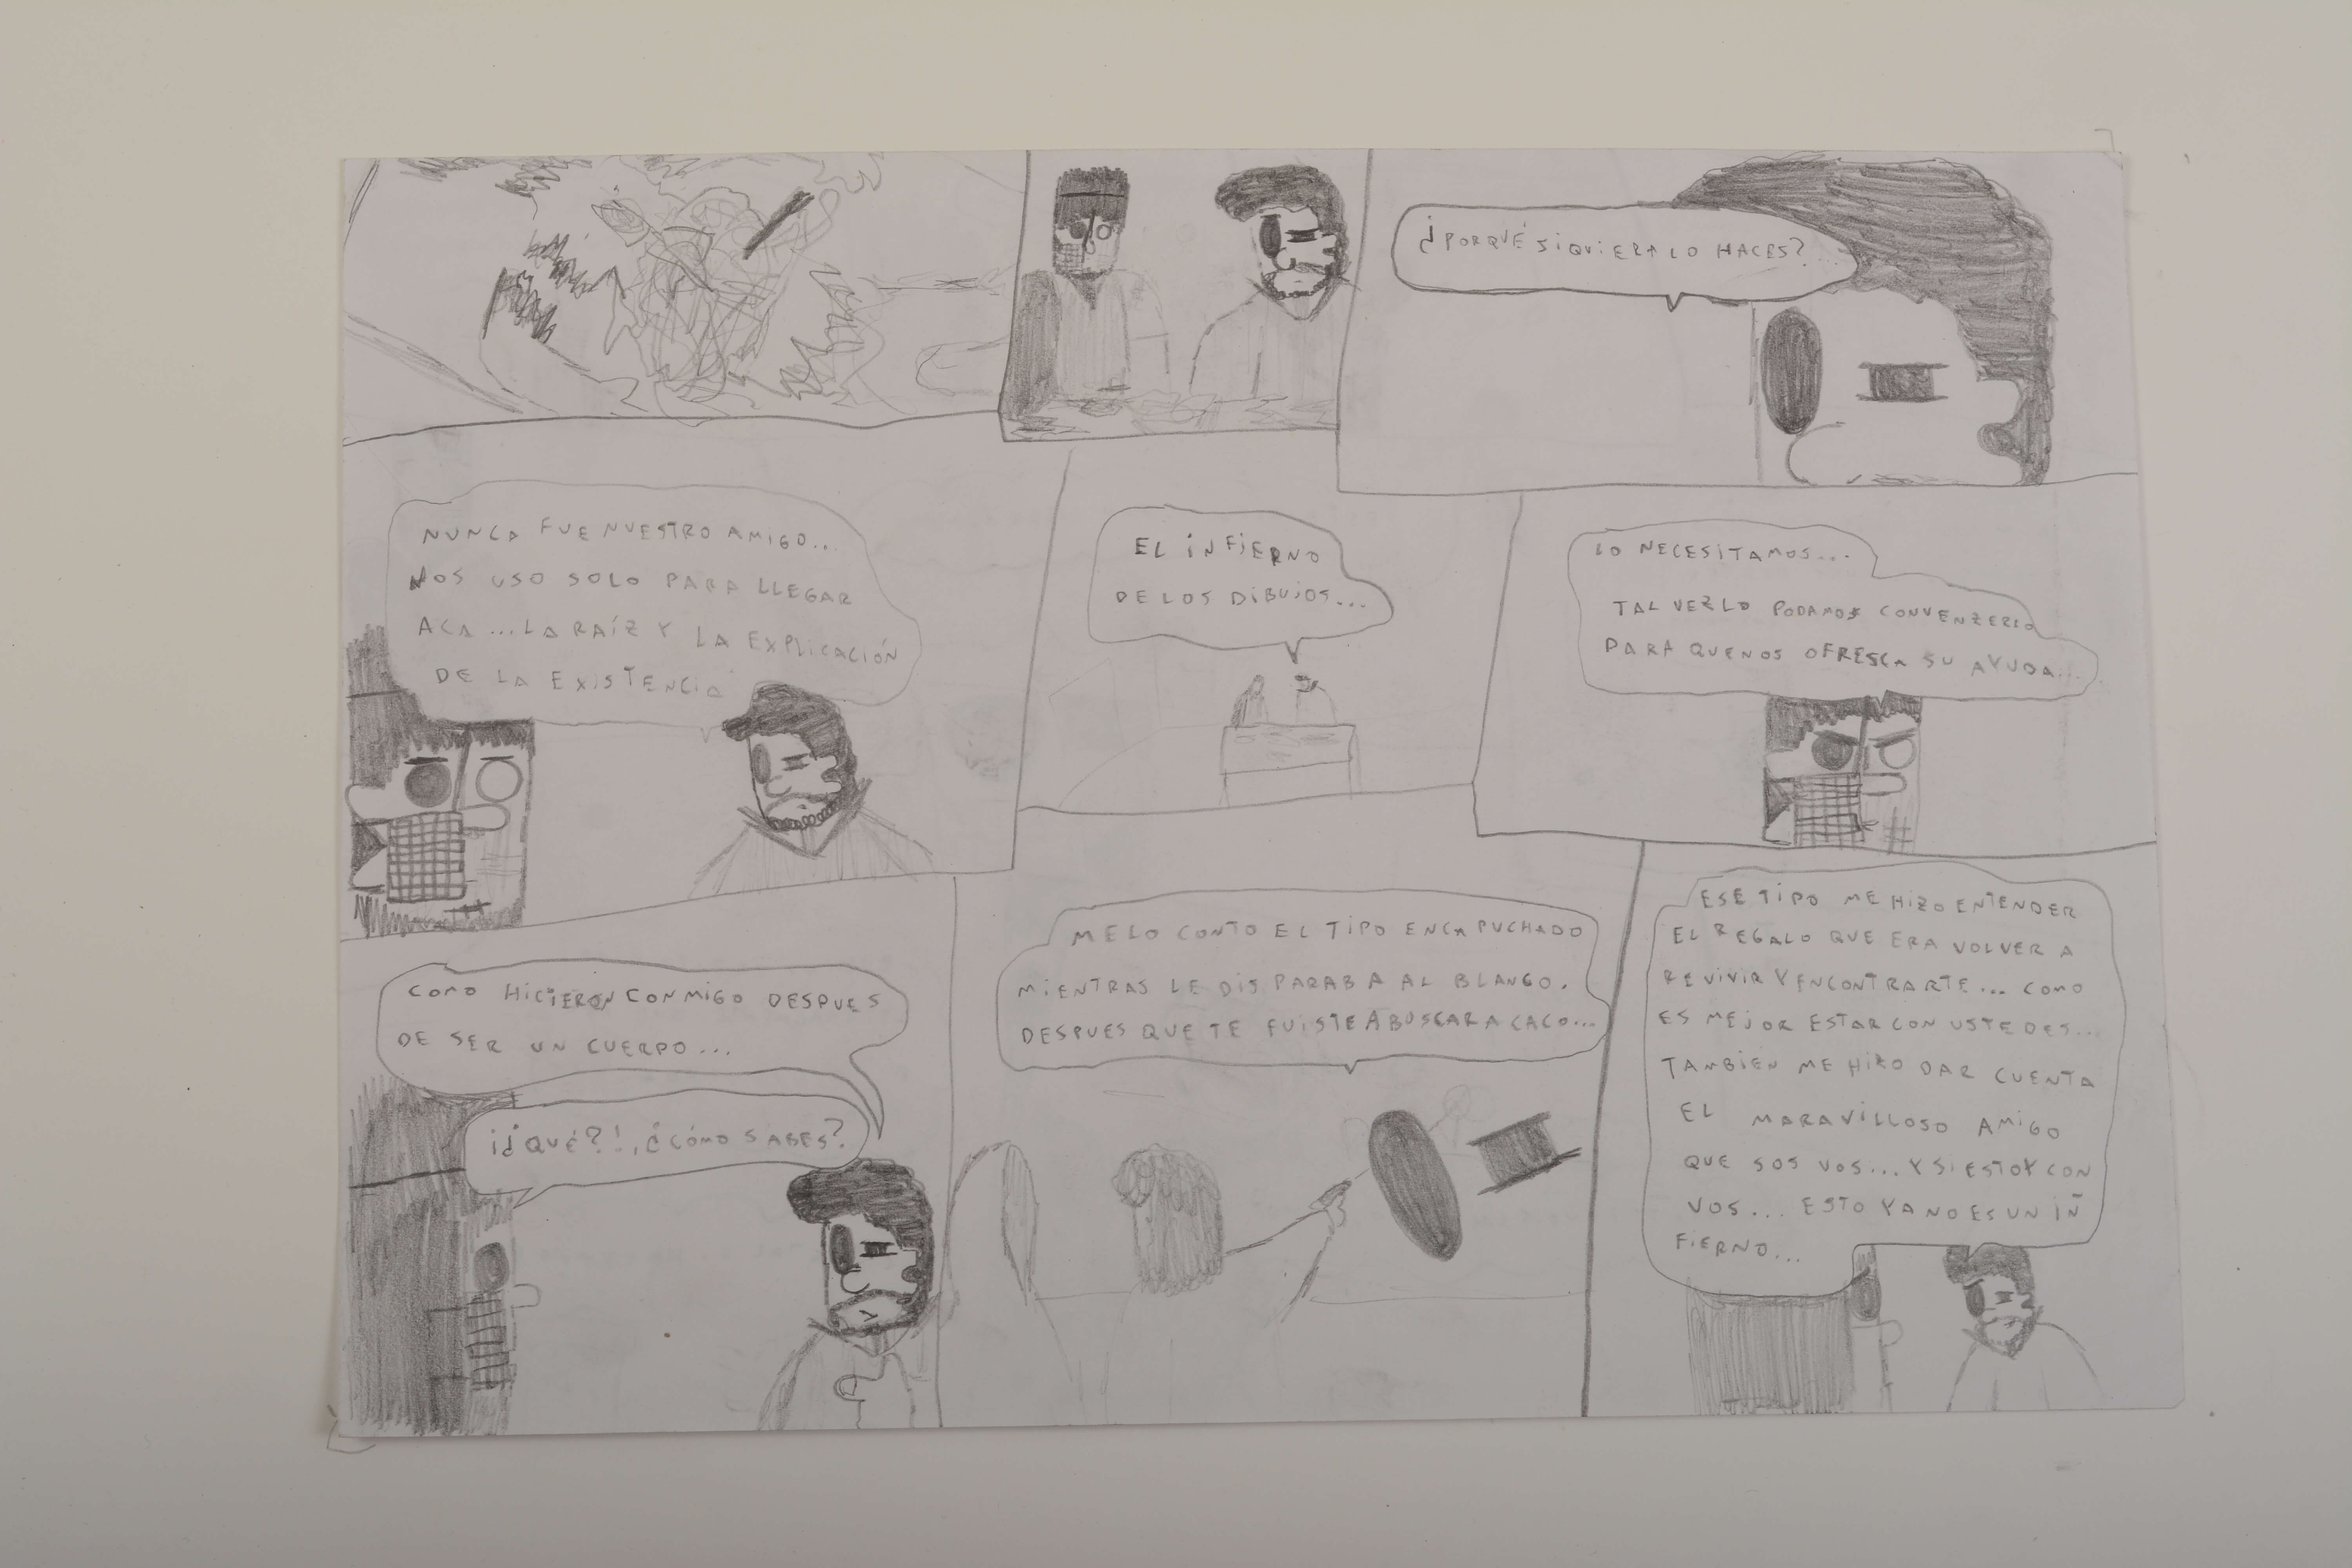 ¿PORQUÉ SIQUIERA LO HACES?...
NUNCA FUE NUESTRO AMIGO...
NOS USO SOLO PARA LLEGAR
ACA...LA RAÍZ Y LA EXPLICACIÓN
DE LA EXISTENCIA
EL INFIERNO
DE LOS DIBUJOS...
LO NECESITAMOS...
TAL VEZ LO PODAMOS CONVENZERLO
PARA QUE NOS OFRESCA SU AYUDA...
COMO HICIERON CONMIGO DESPUES
DE SER UN CUERPO...
¡¿QUÉ?!, ¿CÓMO SABES?
ME LO CONTO EL TIPO ENCAPUCHADO
MIENTRAS LE DISPARABA AL BLANGO.
DESPUES QUE TE FUISTE A BUSCAR A CACO...
ESE TIPO ME HIZO ENTENDER
EL REGALO QUE ERA VOLVER A
REVIVIR Y ENCONTRARTE... COMO
ES MEJOR ESTAR CON USTEDES...
TAMBIEN ME HIZO DAR CUENTA
EL MARAVILLOSO AMIGO
QUE SOS VOS... Y SI ESTOY CON
VOS... ESTO YA NO ES UN IÑ
FIERNO...